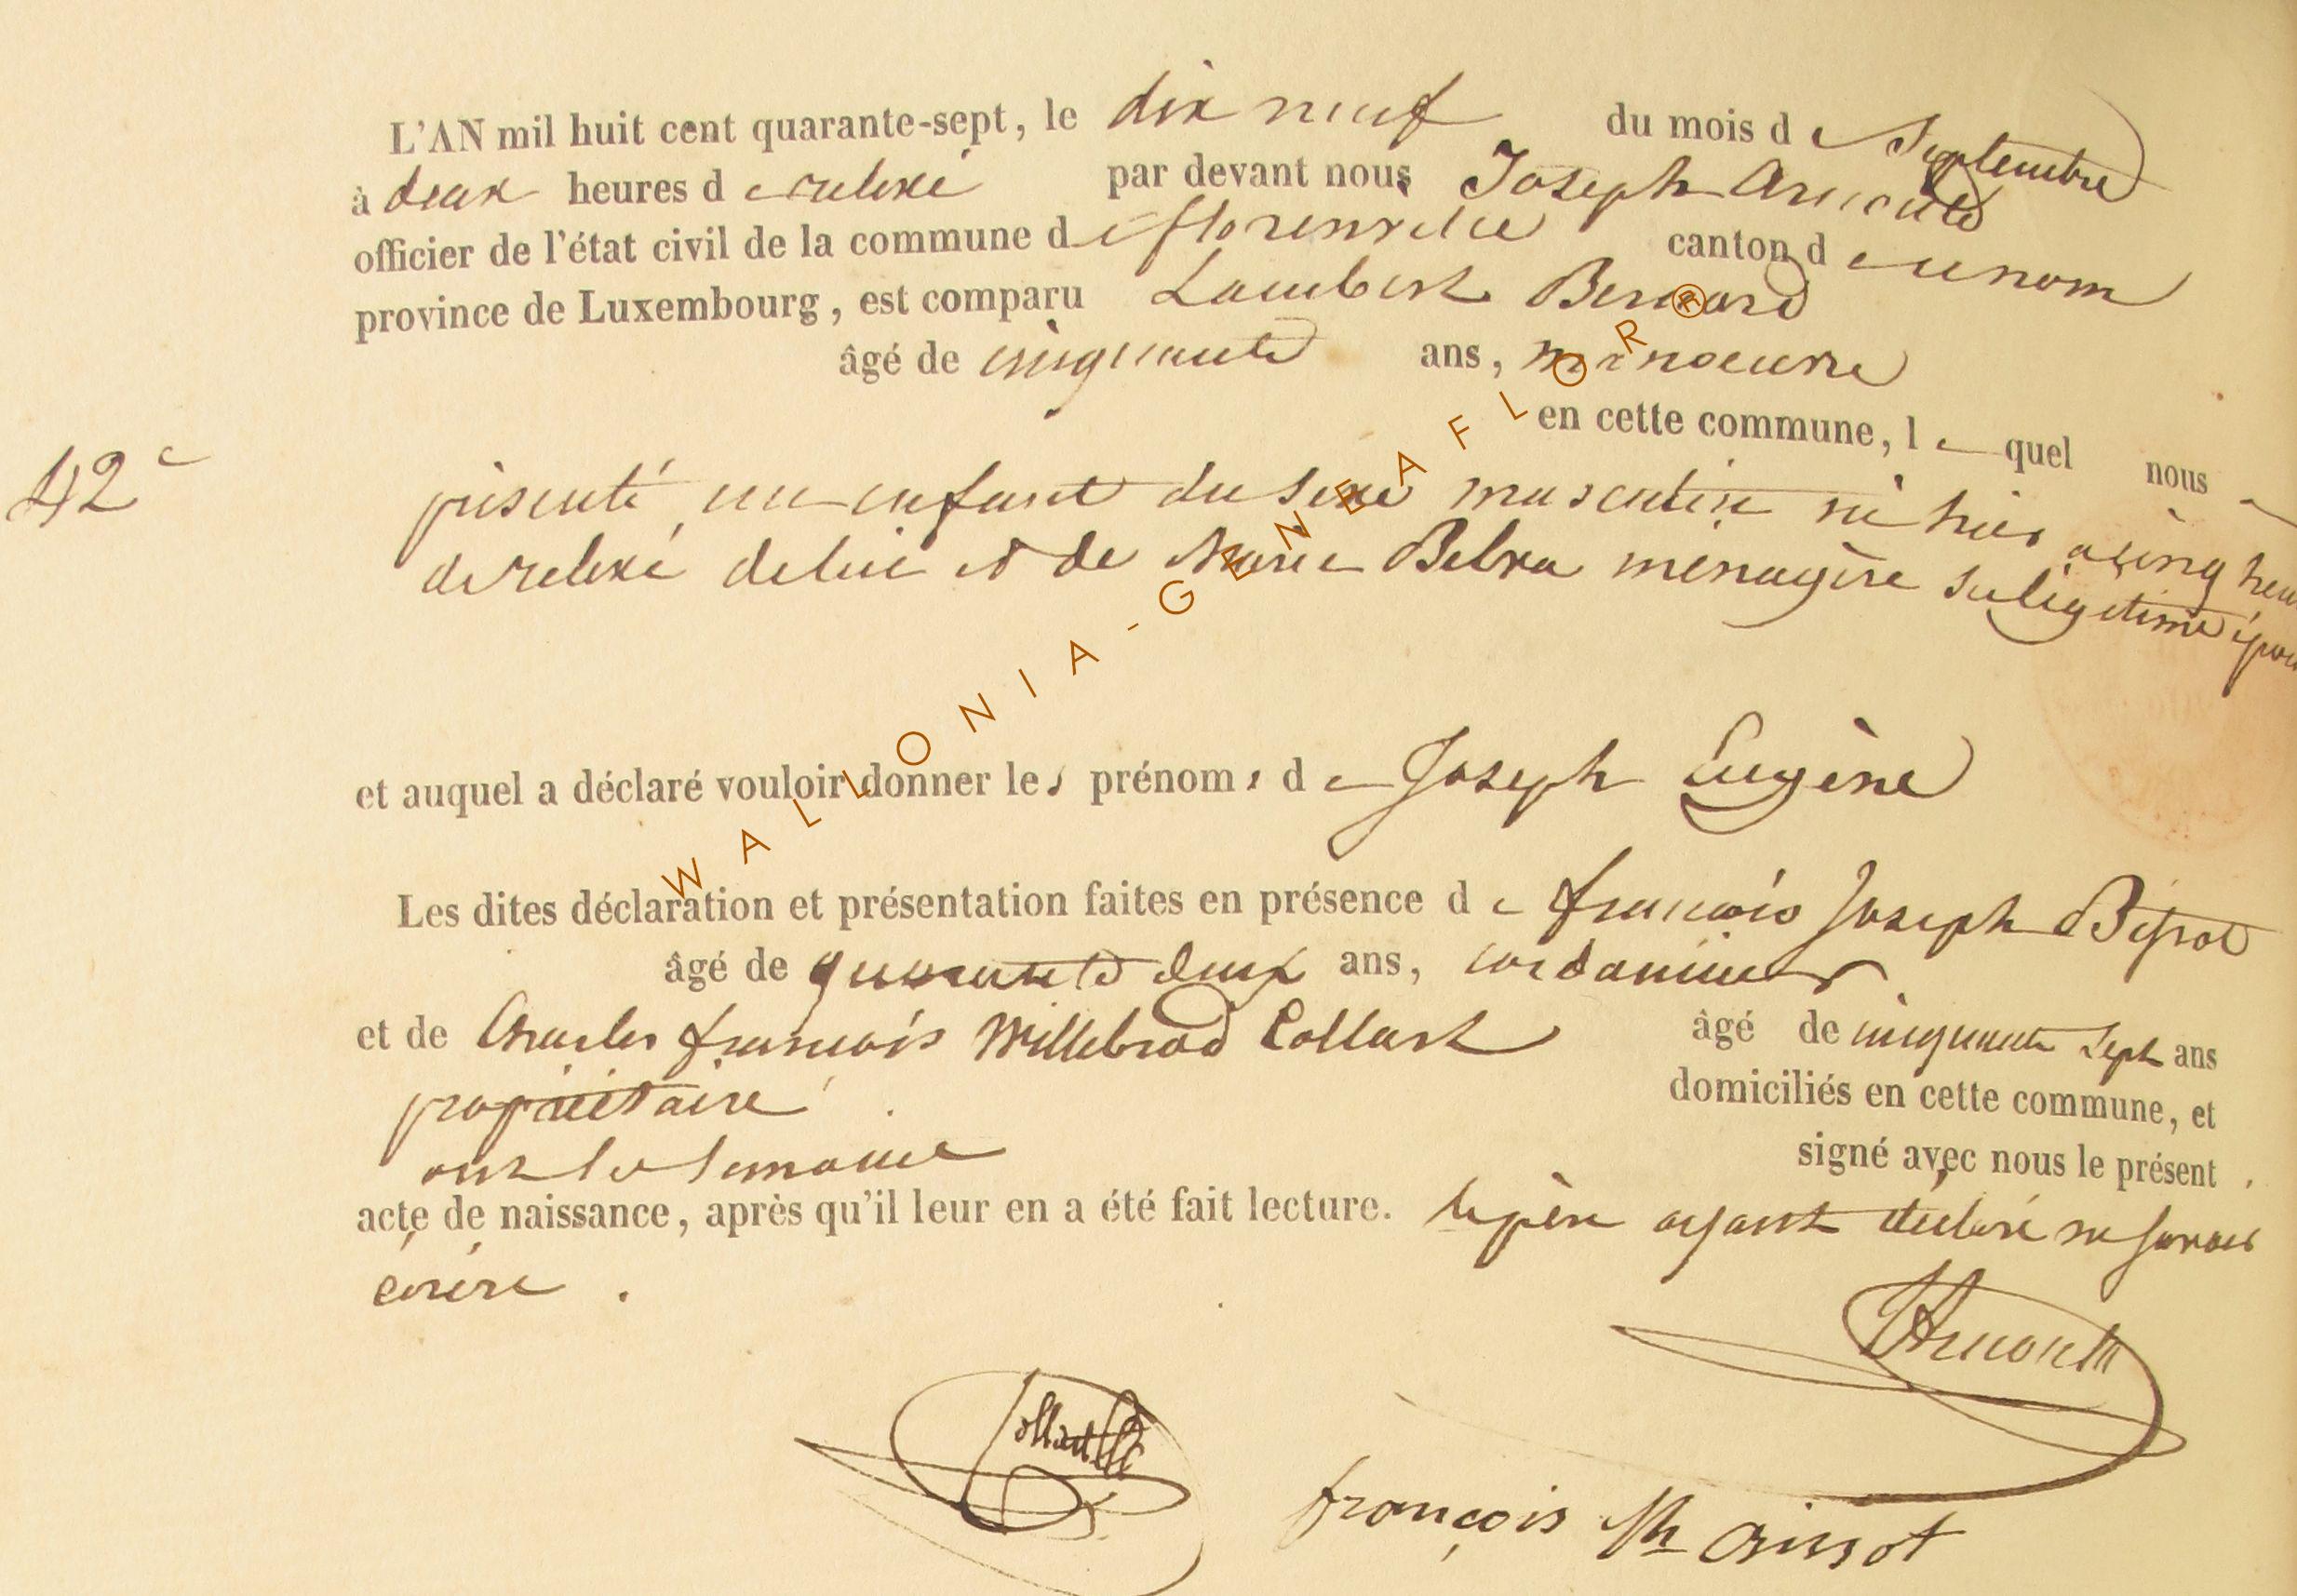 L'AN mil huit cent quarante-sept, le dix neuf du mois de Septembre
à deux heures de relevé par devant nous Joseph Arnould
officier de l'état civil de la commune de florenville canton de unom
province de Luxembourg, est comparu Lambert Bernard
âgé de cinquante ans, manoeuvre
en cette commune, le quel nous a
42e
présenté un enfant du sexe masculin né hier à cinq heu
de relevé de lui et de Marie Belva ménagère sa légitime épou
et auquel a déclaré vouloir donner les prénoms de Joseph Eugène
Les dites déclaration et présentation faites en présence de françois Joseph
âgé de quarante deux ans, cordonnier
et de Charles françois Willebrod Collart âgé de cinquante sept ans
propriétaire domiciliés en cette commune, et
ont les témoins signé avec nous le présent
acte de naissance, après qu'il leur en a été fait lecture. le père ayant déclaré ne savoir
écrire.
JArnould
Collart
françois Jh
WALLONIA-GENEAFLOR®